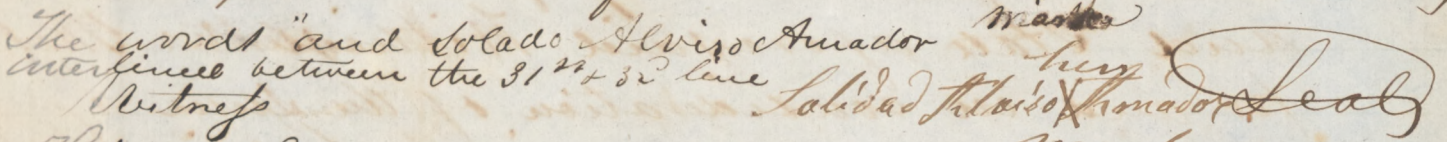 The words "and Solado Alviso Amador
interlined between the 31st & 32d line
Witness
mark
her
Solidad Alviso X Amador Seal